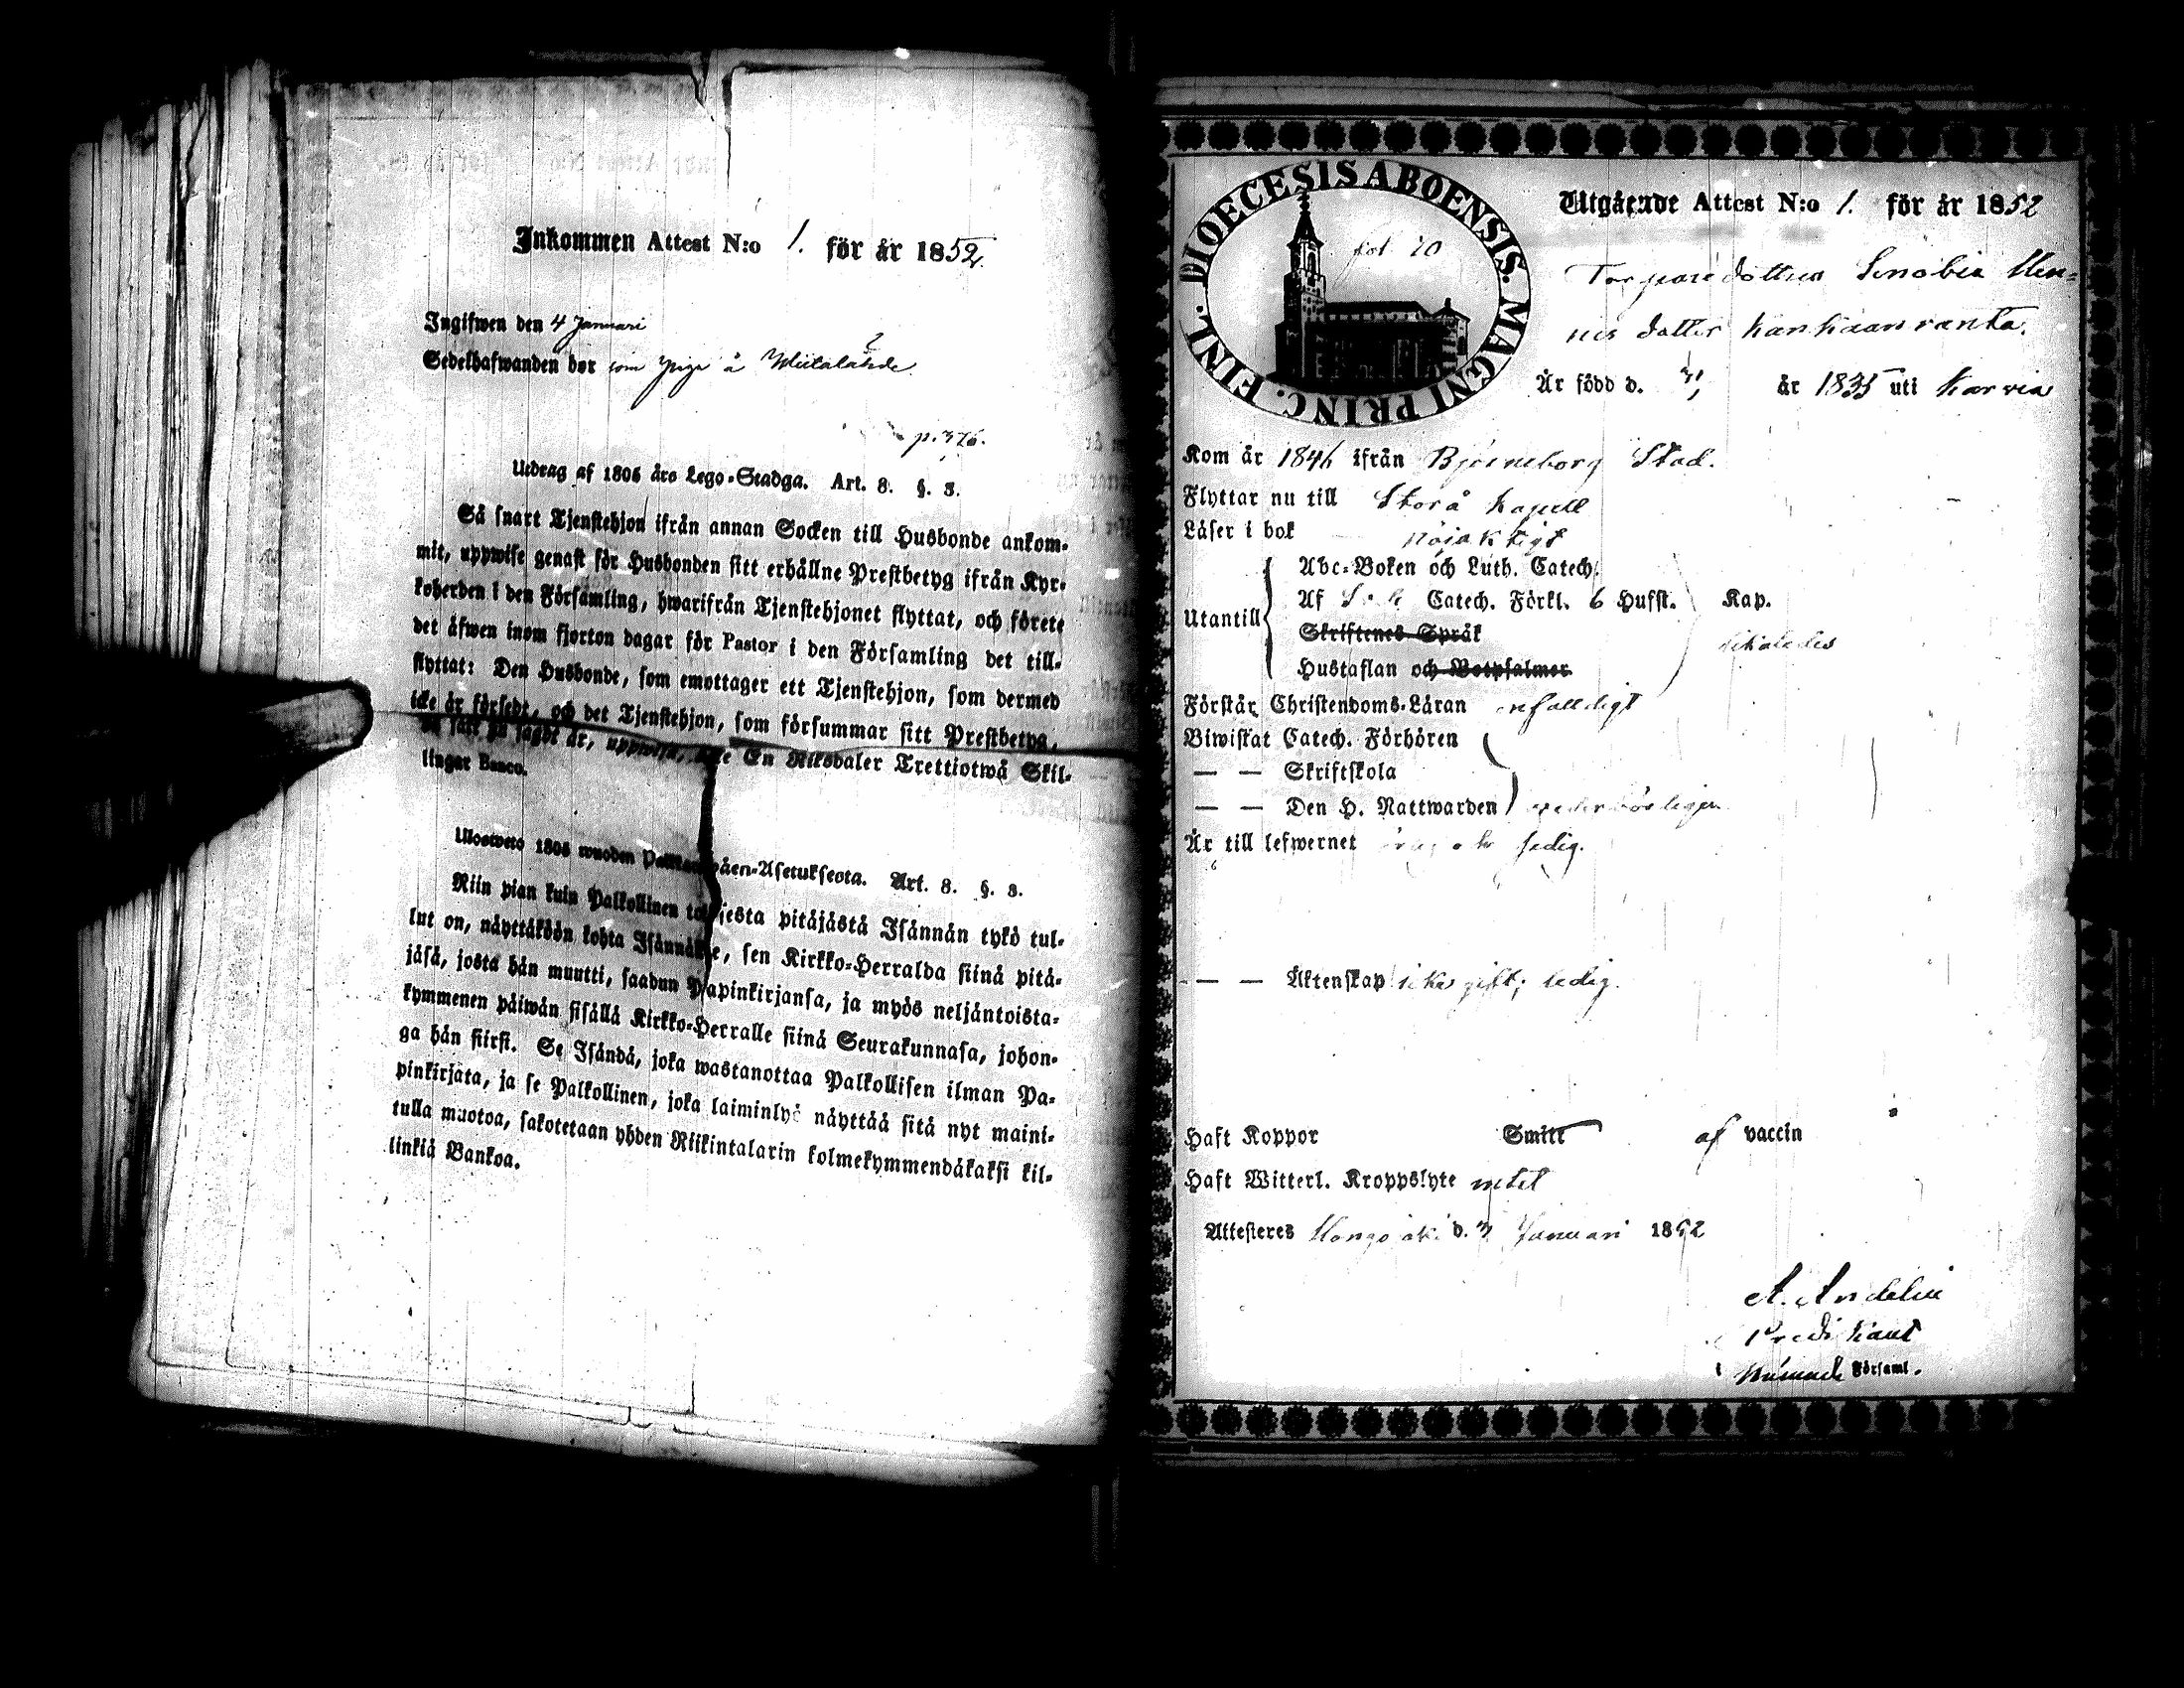 Inkommen Attest N:o 1. för år 1852.
Ingifwen den 4 Januari
Sedelhafwanden bor som piga å
p. 376.
Utdrag af 1805 års Lego-Stadga. Art. 8. §. 8.
Så snart Tjenstehjon ifrån annan Socken till Husbonde ankom-
mit, uppwise genast för Husbonden sitt erhållne Prestbetyg ifrån Kyr-
koherden i den Församling, hwarifrån Tjenstehjonet flyttat, och förete
det äfwen inom fjorton dagar för Pastor i den Församling det till-
flyttat: Den Husbonde, som emottager ett Tjenstehjon, som dermed
icke är försedt, och det Tjenstehjon, som försummar sitt Prestbetyg,
på sätt nu sagdt är, uppwisa, En Riksdaler Trettiotwå Skil-
lingar Banco.
Ulosweto 1805 wuoden Asetuksesta. Art. 8. §. 8.
Niin pian kuin Palkollinen toisesta pitäjästä Isännän tykö tul-
lut on, näyttäköön kohta Isännälle, sen Kirkko-Herralda siinä pitä-
jäsä, josta hän muutti, saadun Papinkirjansa, ja myös neljäntoista-
kymmenen päiwän sisällä Kirkko-Herralle siinä Seurakunnasa, johon-
ga hän siirsi. Se Isändä, joka wastanottaa Palkollisen ilman Pa-
pinkirjata, ja se Palkollinen, joka laiminlyö näyttää sitä nyt maini-
tulla muotoa, sakotetaan yhden Riikintalarin kolmekymmendäkaksi kil-
linkiä Bankoa.
DIOECESIS ABOENSIS. MAGNI PRINC. FINL.
fol 70
Utgående Attest N:o 1. för år 1852
Torparedottren Senobia Hen-
dotter Kankaanranta.
Är född d. år 1835 uti Karvia
Kom år 1846 ifrån Björneborg Stad.
Flyttar nu till Storå Kapell
Läser i bok nöjaktigt
Utantill
Abc-Boken och Luth. Catech.
Af Catech. Förkl. 6 Hufst. Kap.
Skriftenes Språk
likaledes
Hustaflan och Botpsalmer
Förstår Christendoms-Läran enfaldigt
Biwistat Catech. Förhören
— — Skriftskola
— — Den H. Nattwarden wederbörligen
Är till lefwernet ärlig och sedig.
— — Äktenskap icke gift; ledig.
Haft Koppor Smitt af vaccin
Haft Witterl. Kroppslyte intet
Attesteres d. 3 Januari 1852
A. Andelin
Predikant
Församl.